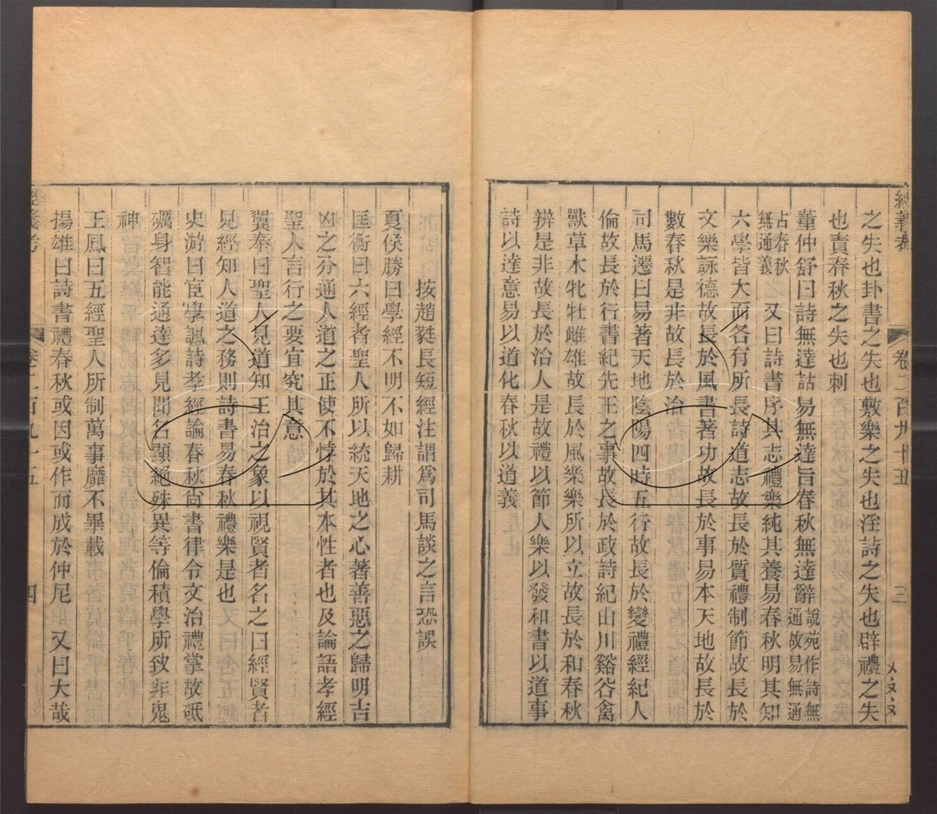 經義考 卷二百九十五 三
之失也卦書之失也敷樂之失也淫詩之失也辟禮之失
也責春秋之失也刺
董仲舒曰詩無達詁易無達旨春秋無達辭說苑作詩無通故易無通
占春秋無通義又曰詩書序其志禮樂純其養易春秋明其知
六學皆大而各有所長詩道志故長於質禮制節故長於
文樂詠德故長於風書著功故長於事易本天地故長於
數春秋是非故長於治
司馬遷曰易著天地陰陽四時五行故長於變禮經紀人
倫故長於行書紀先王之事故長於政詩紀山川谿谷禽
獸草木牝牡雌雄故長於風樂樂所以立故長於和春秋
辨是非故長於治人是故禮以節人樂以發和書以道事
詩以達意易以道化春秋以道義
按趙蕤長短經注謂爲司馬談之言恐誤
夏侯勝曰學經不明不如歸耕
匡衡曰六經者聖人所以統天地之心著善惡之歸明吉
凶之分通人道之正使不悖於其本性者也及論語孝經
聖人言行之要宜究其意
翼奉曰聖人見道知王治之象以視賢者名之曰經賢者
見經知人道之務則詩書易春秋禮樂是也
史游曰宦學諷詩孝經論春秋尙書律令文治禮掌故砥
礪身智能通達多見聞名顯絕殊異等倫積學所致非鬼
神
王鳳曰五經聖人所制萬事靡不畢載
揚雄曰詩書禮春秋或因或作而成於仲尼 又曰大哉
經義考 卷二百九十五 四